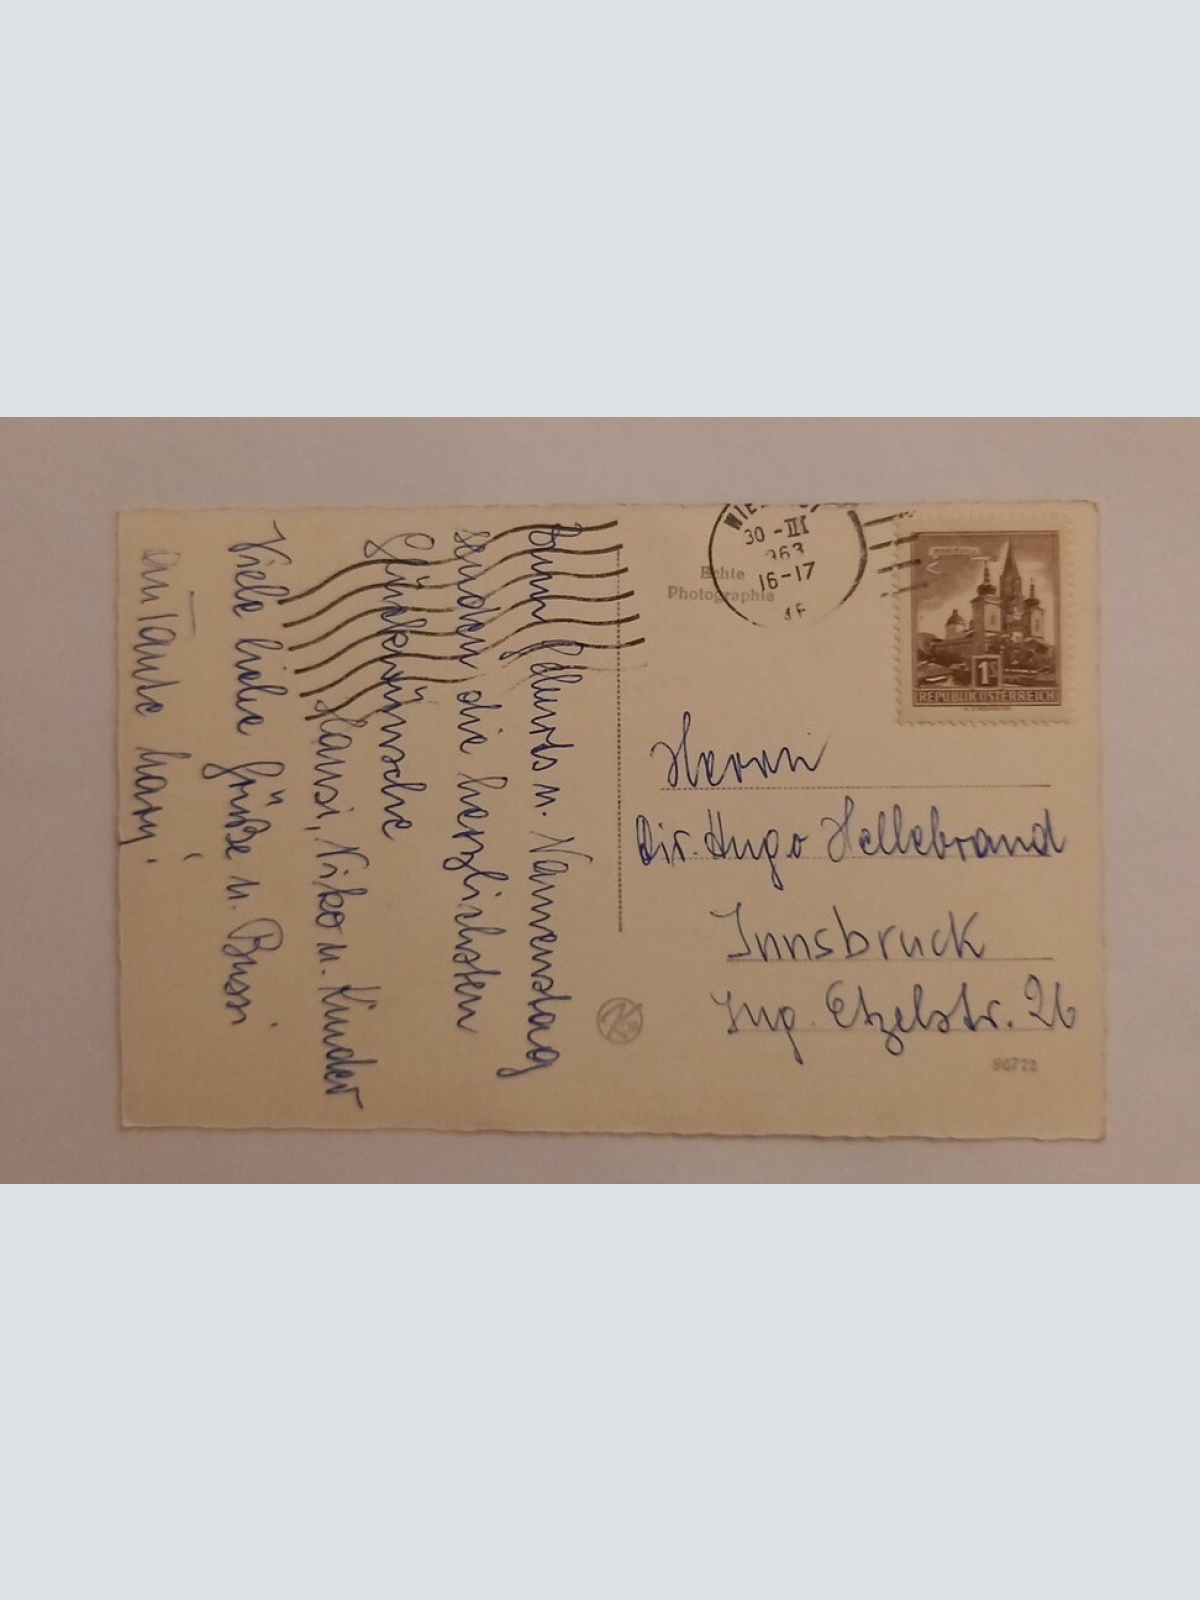 Zum Geburts u. Namenstag
senden die herzlichsten
Glückwünsche
Hansi, Niko u. Kinder
Viele liebe Grüße u. Bussi
an Tante
WIEN
30-III
963
16-17
Echte
Photographie
1S
REPUBLIK ÖSTERREICH
Herrn
Dir. Hugo Hellebrand
Innsbruck
Ing. Etzelstr. 26
86772